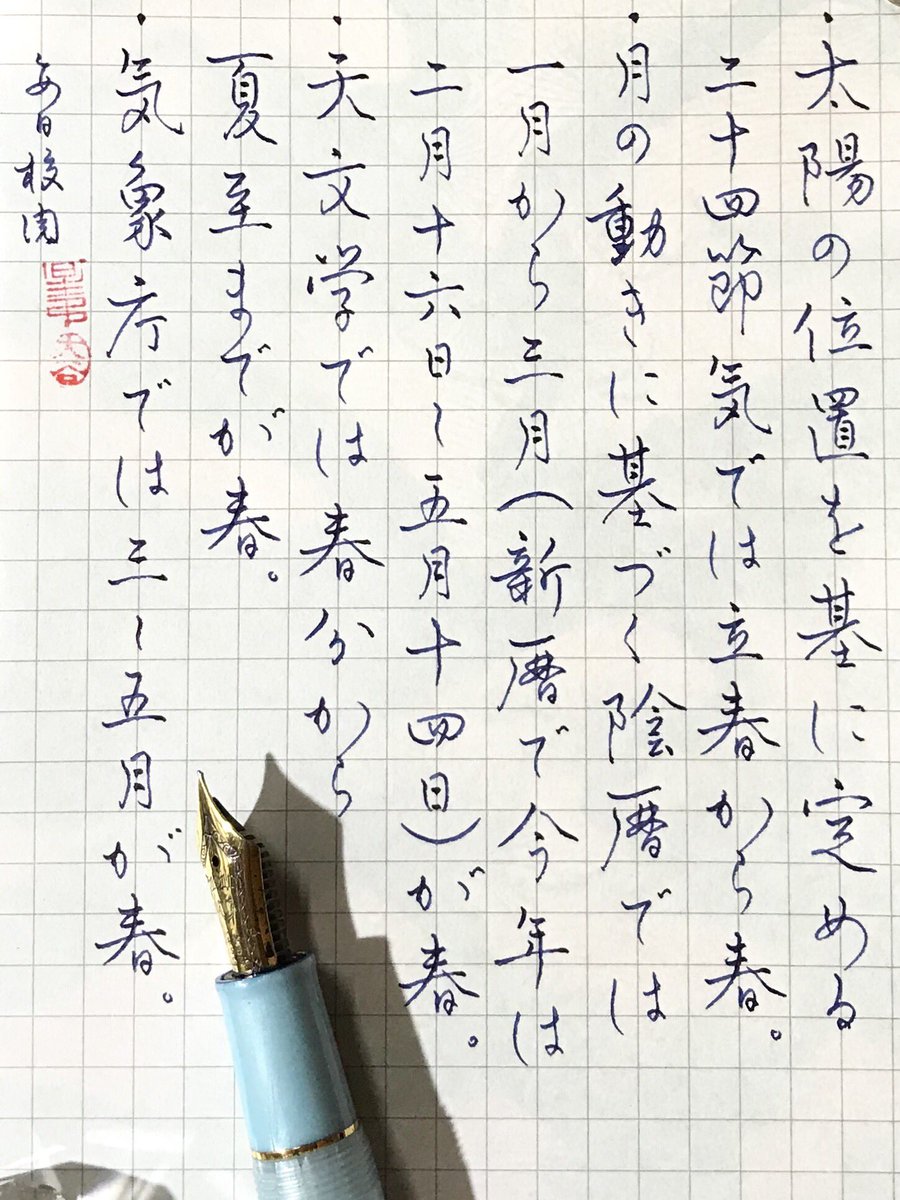 ・太陽の位置を基に定める
二十四節気では立春から春。
・月の動きに基づく陰暦では
一月から三月（新暦で今年は
二月十六日〜五月十四日）が春。
・天文学では春分から
夏至までが春。
・気象庁では三〜五月が春。
毎日校閲